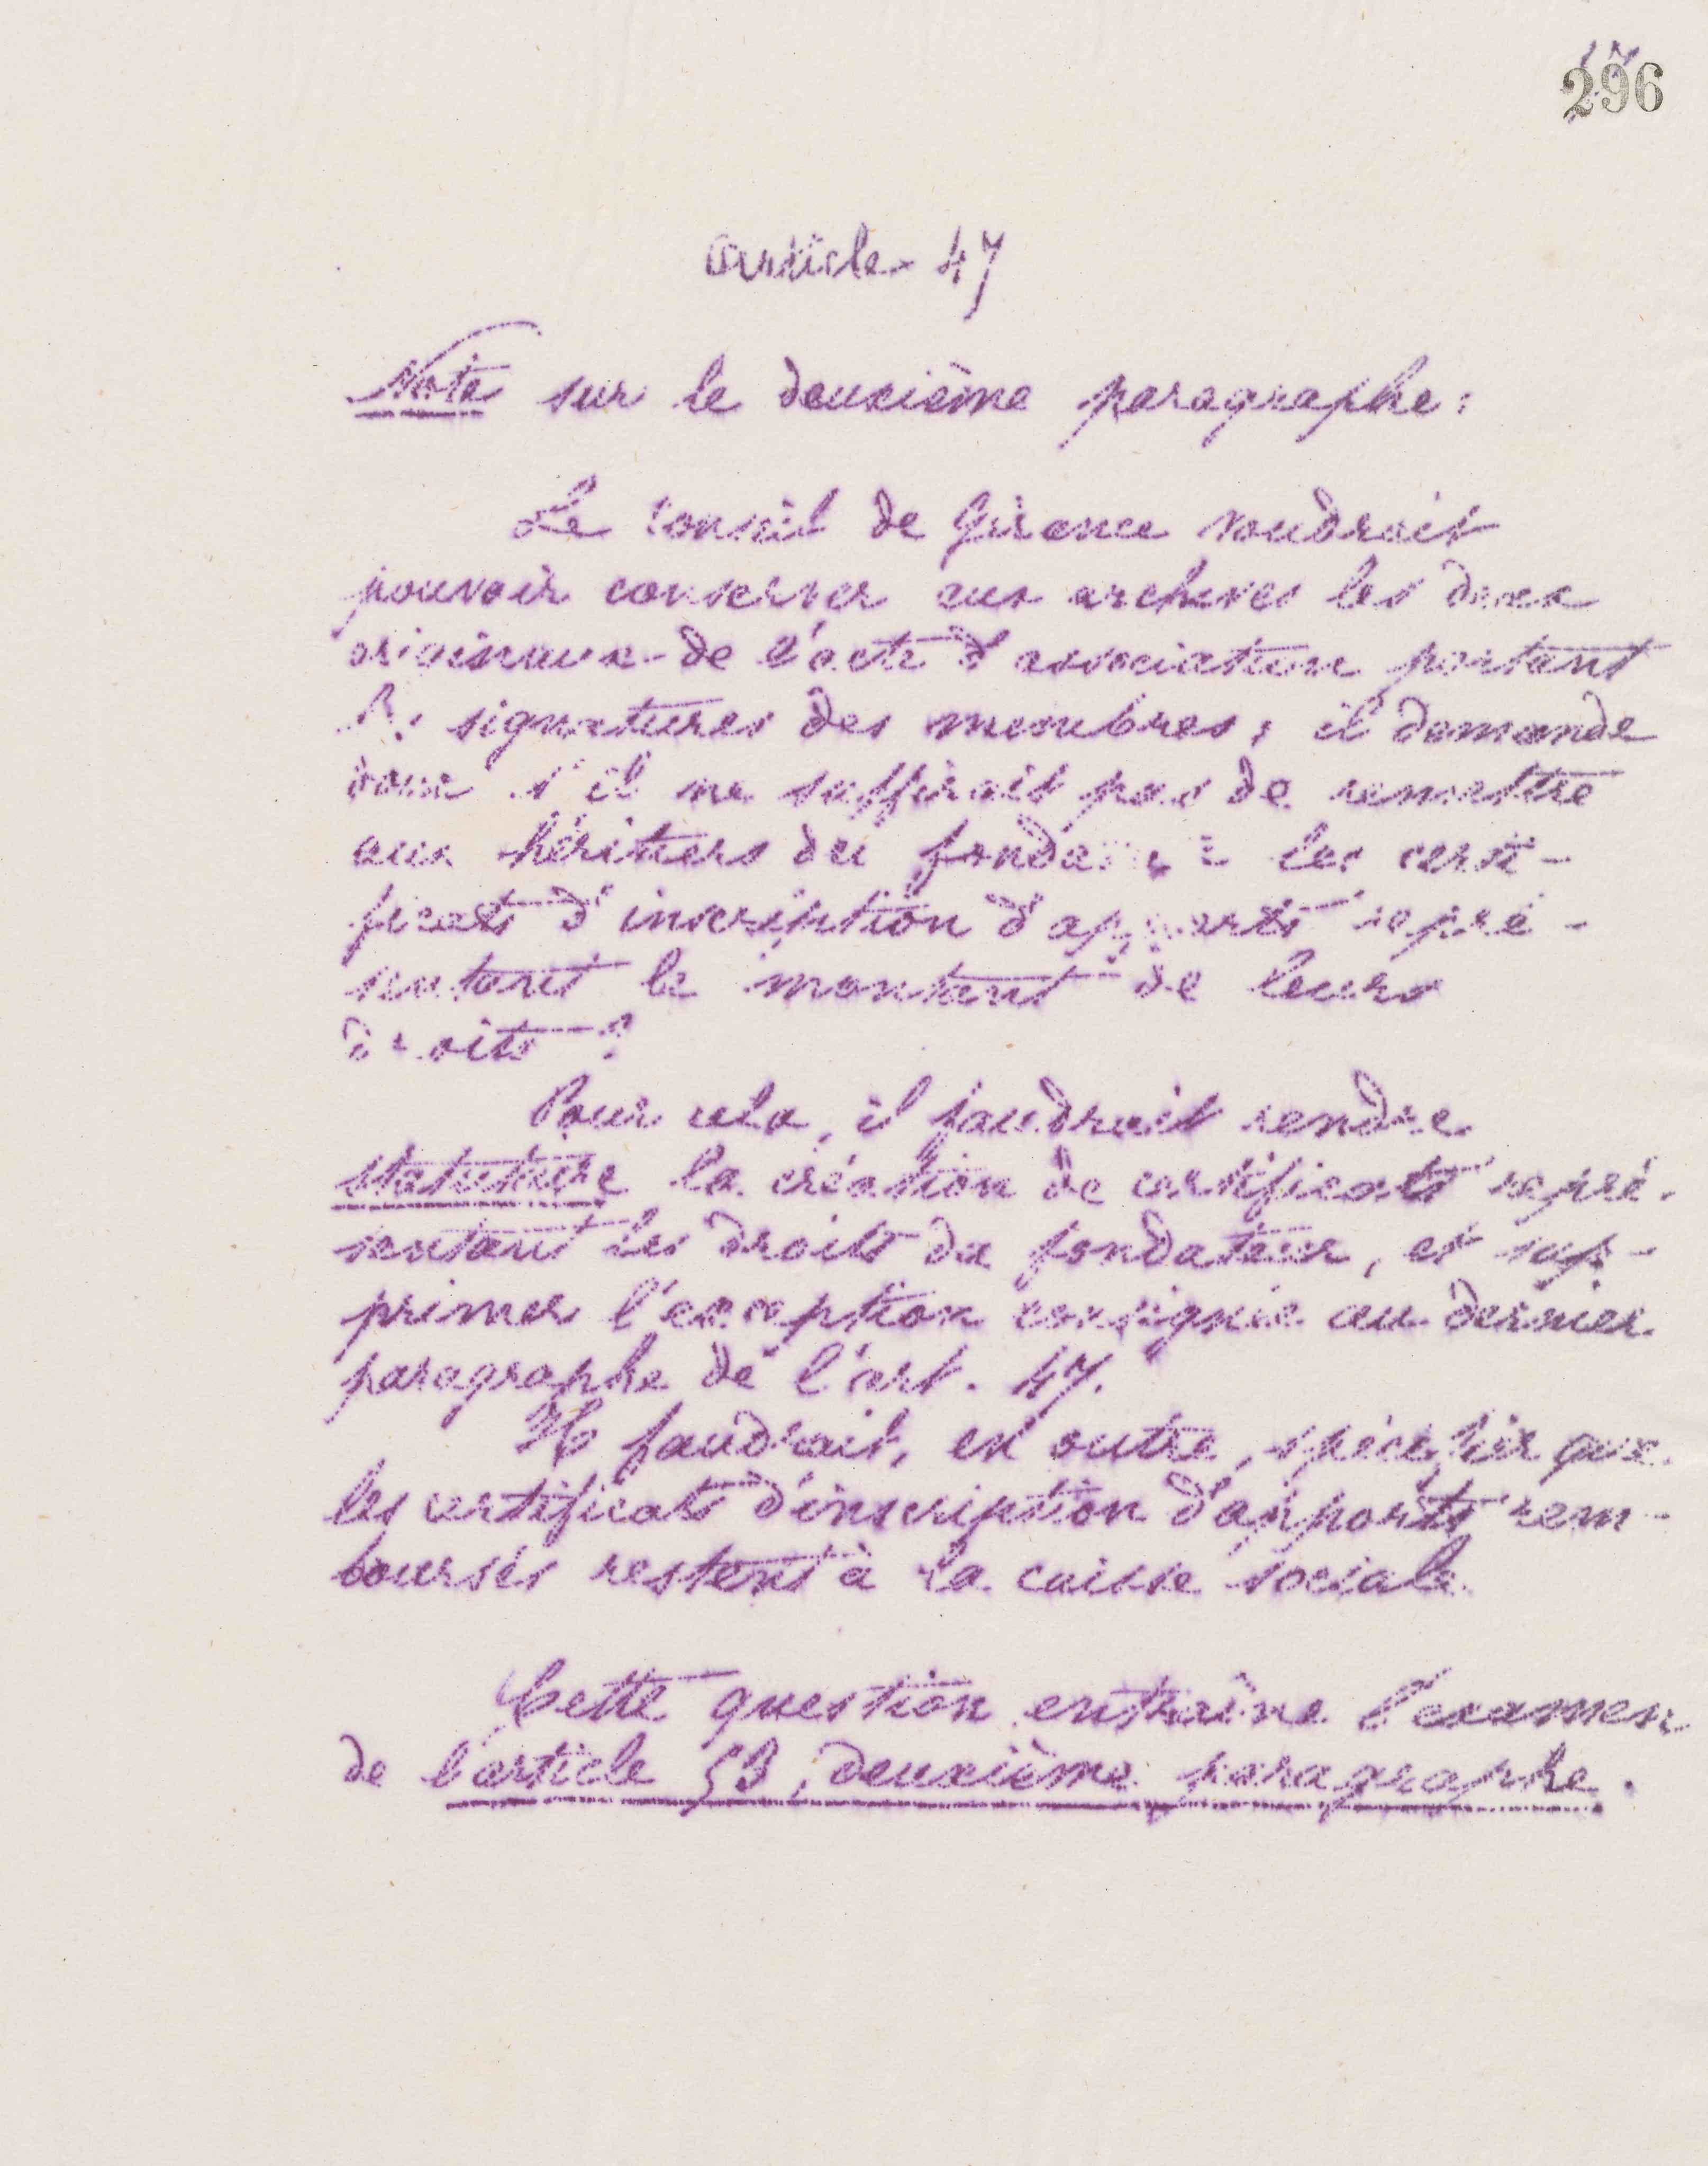 296
Article 47
Note sur le deuxième paragraphe :
Le Conseil de Gérance voudrait
pouvoir conserver aux archives les deux
originaux de l'acte d'association portant
signatures des membres ; il demande
donc s'il ne suffirait pas de remettre
aux héritiers du fondateur les certi-
ficats d'inscription d'apports repré-
sentant le montant de leurs
droits ?
Pour cela, il faudrait rendre
statutaire la création de certificats repré-
sentant les droits du fondateur, et sup-
primer l'exception consignée au dernier
paragraphe de l'art. 47.
Il faudrait, en outre, spécifier que
les certificats d'inscription d'apports rem-
boursés restent à la caisse sociale.
Cette question entraîne l'examen
de l'article 53, deuxième paragraphe.